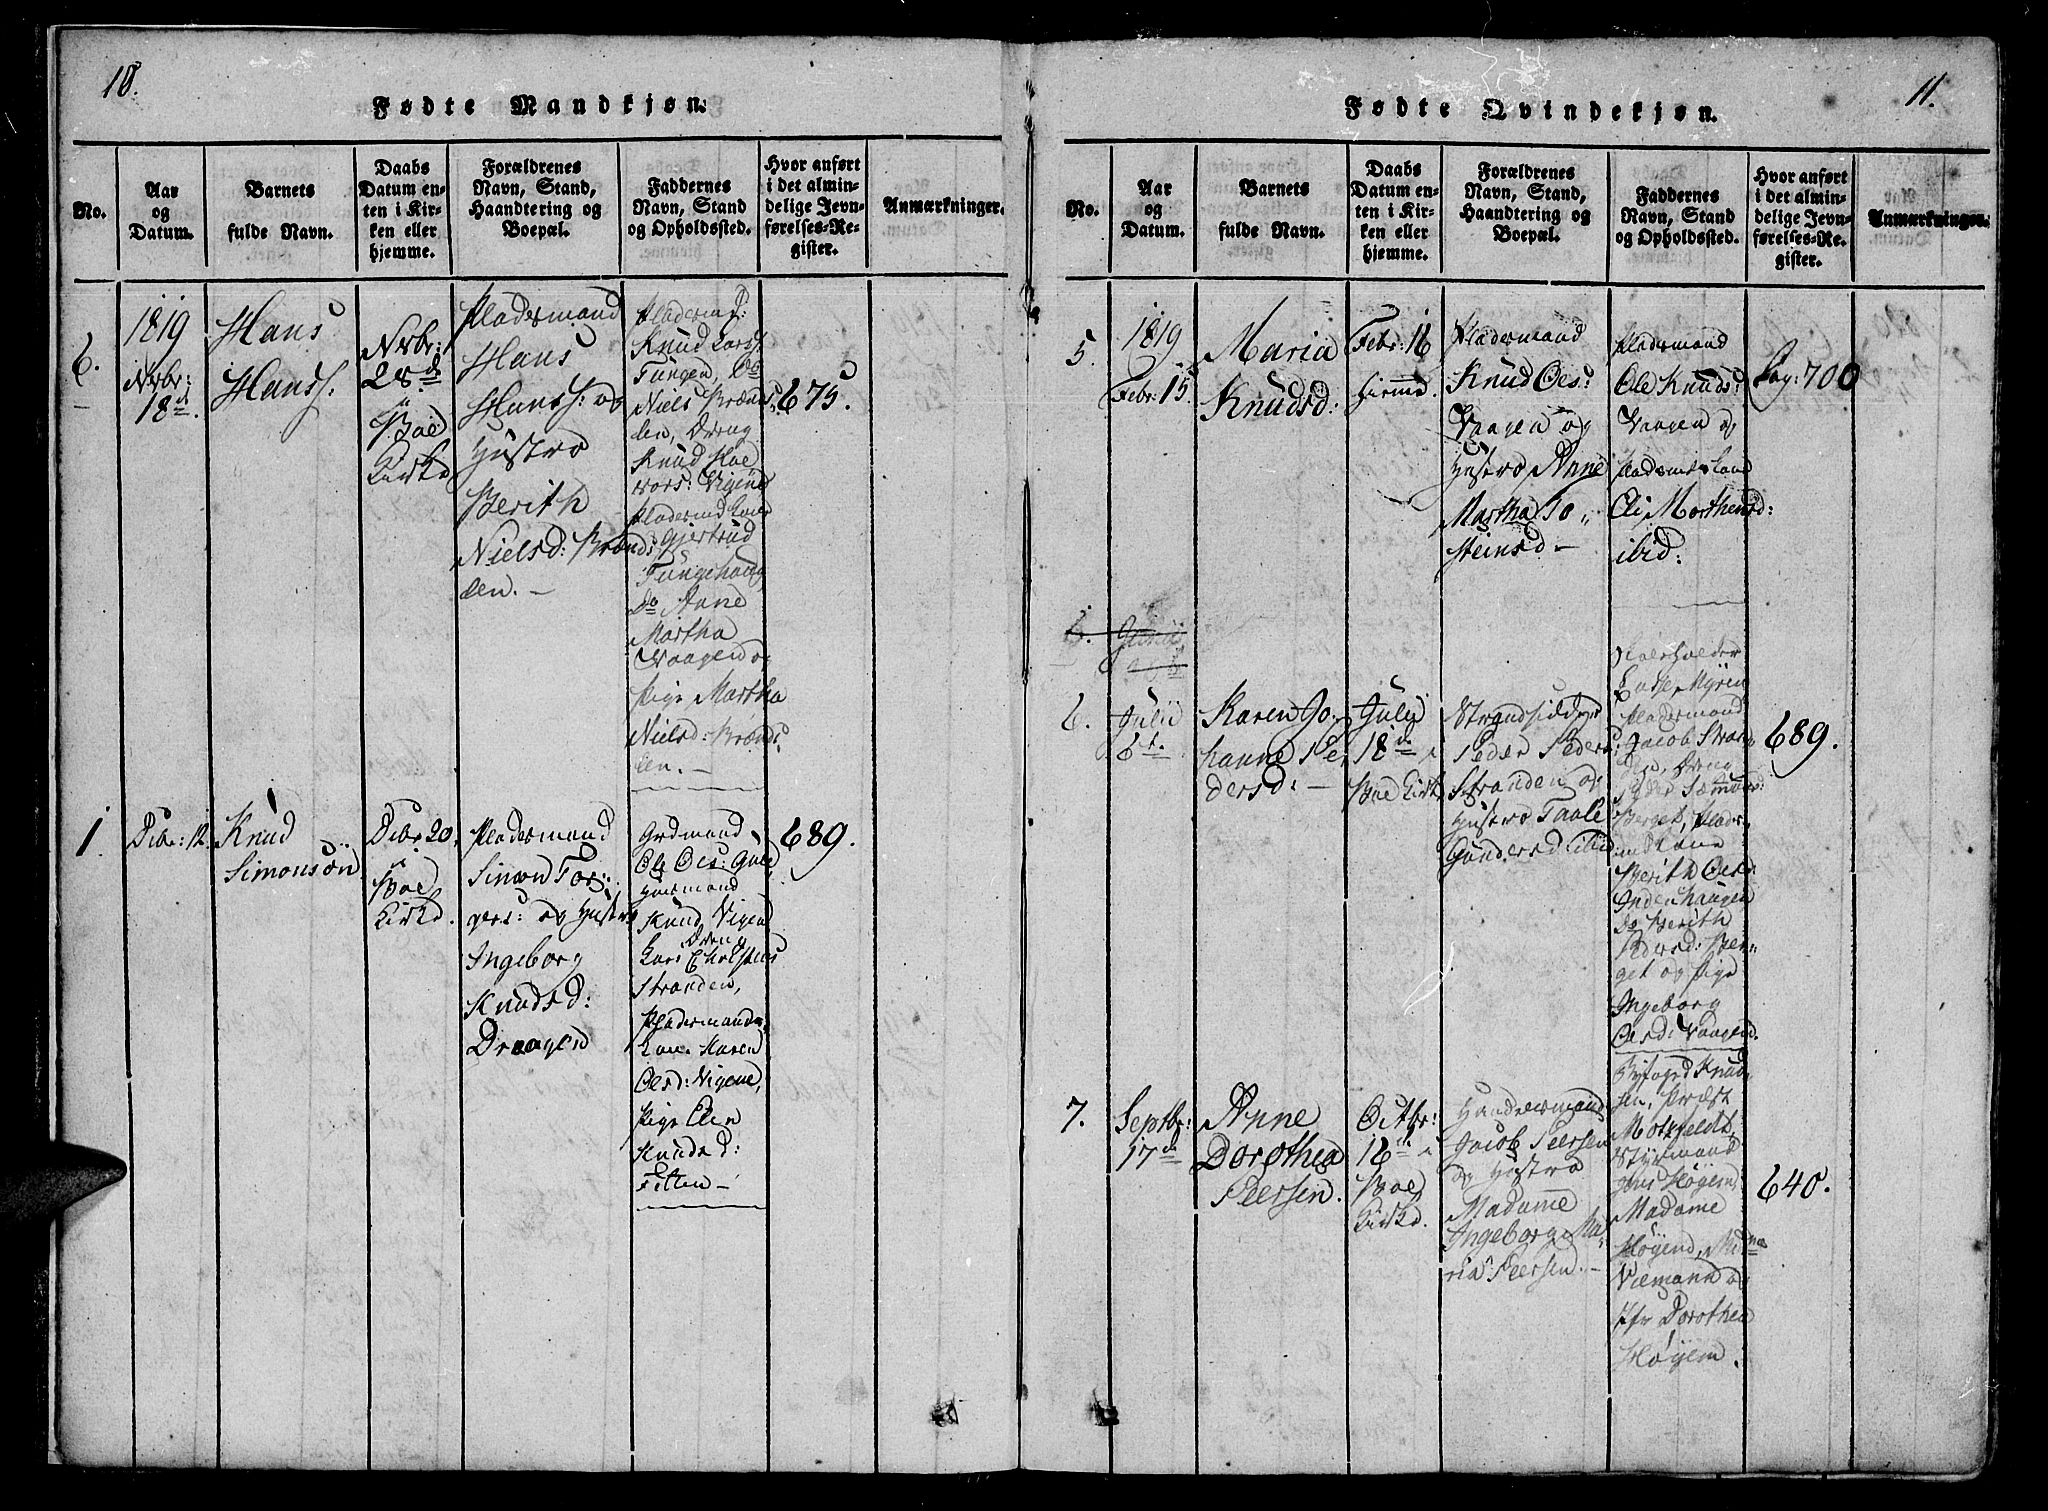 10.
Fødte Mandkjøn.
No.
Aar
og
Datum.
Barnets
fulde Navn.
Daabs
Datum en-
ten i Kir-
ken eller
hjemme.
Forældrenes
Navn, Stand,
Haandtering og
Boepæl.
Faddernes
Navn, Stand
og Opholdssted.
Hvor anført
i det almin-
delige Jevn-
førelses-Re-
gister.
Anmærkninger.
6.
1819
Nvbr:
18d.
Hans
Hanss:
Nvbr:
28d
i
Boe
Kirke
Pladsmand
Hans
Hanss: og
Hustro
Berith
Nielsd: Brænd:
len. –
Pladsmd:
Knud Lars:
Tungen, Do
Niels Brænds
len, Dreng
Knud Hoe
vors: Vigene
Gjertrud
Tungehaug
Do Anne
Martha
Vaagen og
Pige Martha
Nielsd: Brænds
len. –
675.
1.
Dcbr: 12.
Knud
Simonsøn
Dcbr 20
i
Boe
Kirke.
Pladsmand
Simon Tor:
gers: og Hustro
Ingeborg
Knudsd:
Draagen
Grdmand
Ole Oes:
Huusmand
Knud Vigen
Dreng
Lars Christens
Stranden,
Pladsmands
Kone Karen
Olesd: Vigene,
Pige Elen
Knudsd:
Fitten –
689.
11.
Fødte Qvindekjøn.
No.
Aar
og
Datum.
Barnets
fulde Navn.
Daabs
Datum en-
ten i Kir-
ken eller
hjemme.
Forældrenes
Navn, Stand,
Haandtering og
Boepæl.
Faddernes
Navn, Stand
og Opholdssted.
Hvor anført
i det almin-
delige Jevn-
førelses-Re-
gister.
Anmærkninger.
5.
1819
Febr: 15.
Maria
Knudsd:
Febr: 16
hiemme.
Pladsmand
Knud Oes:
Vaagen og
Hustro Anne
Martha To,,
steinsd –
Pladsmand
Ole Knuds:
Vaagen og
Pladsmds Kone
Eli Morthensd:
ibid:
Pag: 700
6.
6.
Julii
6t.
Karen Jo,
hanne Pe,
dersd: –
July
18d i
Boe Kirke
Strandsidder
Peder Peders:
Stranden og
Hustro Taale
Gundersd ibid
Lasse Myren
Pladsmand
Jacob Stran
den, Dreng
Peder
Berget, Plads-
mds Kone
Berith Olesd
Indenhaugen
Do Berith
Pedersd: Ber-
get og Pige
Ingeborg
Olesd: Vaagen.
689.
7.
Septbr:
17d
Anne
Dorothea
Peersen.
Octbr:
16d i
Boe
Kirke.
Handelsmand
Jacob Peersen
og Hustro
Madamme
Ingeborg Ma,
ria Peersen. –
Byfoged Knud,
sen, Præst
Motzfeldt,
Styrmand
Jens Høyem,
Madame
Høyem, Mdme
Niemann og
Jfr Dorothea
Høyem.
640.